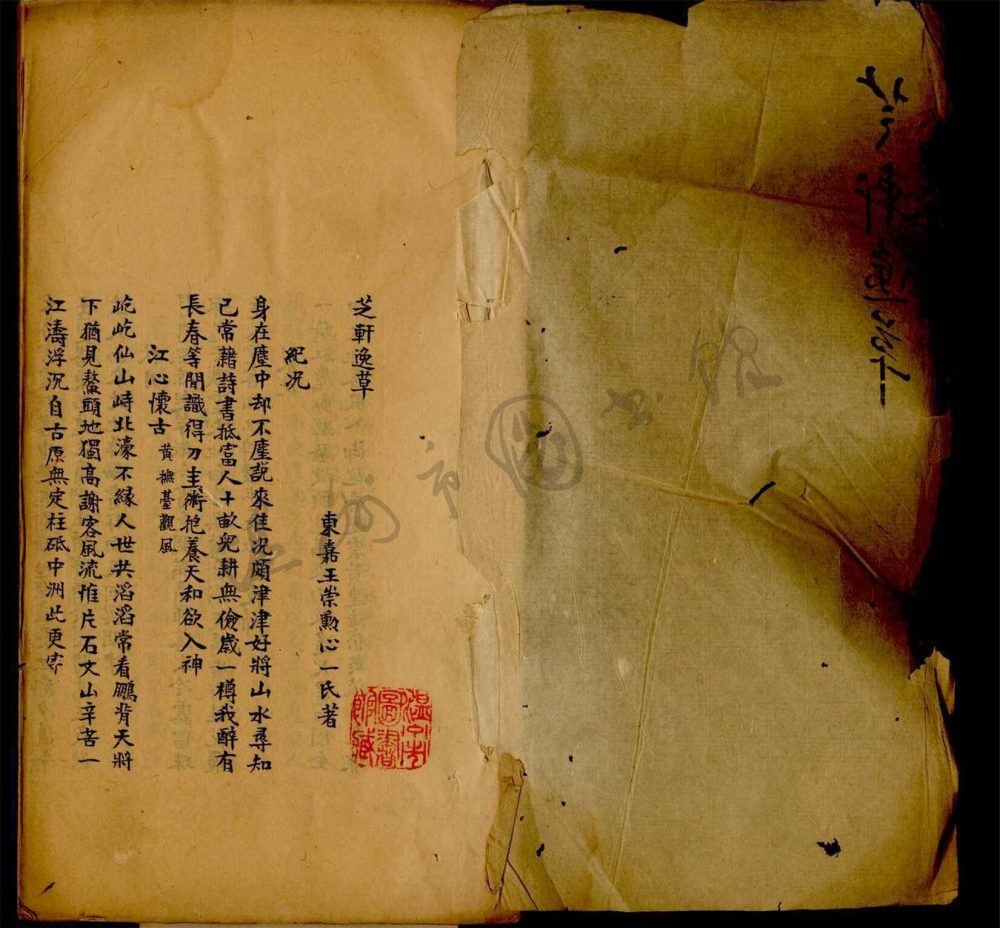 芝軒逸草
芝軒逸草
東嘉王崇勳心一氏著
紀况
身在塵中却不塵説來佳况頗津津好將山水尋知
已常藉詩書抵富人十畝兒耕無儉歲一樽我醉有
長春等閒識得刀圭術抱養天和欲入神
江心懷古 黄撫臺觀風
屹屹仙山峙北濠不緣人世共滔滔常看鵬背天將
下猶見鰲頭地獨高謝客風流惟片石文山辛苦一
江濤浮沉自古原無定柱砥中洲此更牢
温州市圖書館藏
州市圖書館